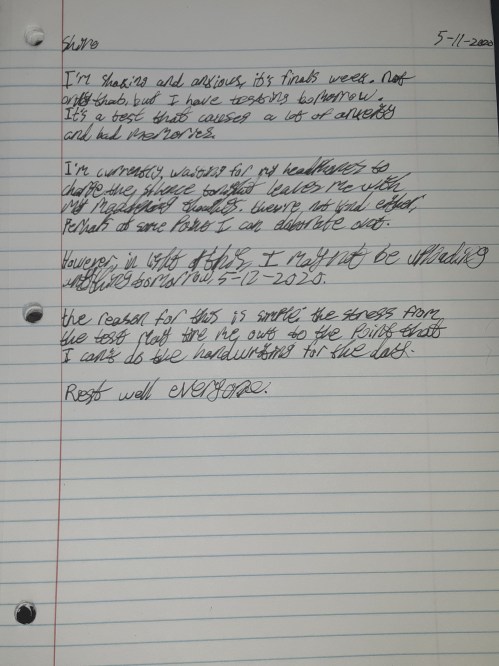 Shiro 5-11-2020
I'm shaking and anxious, it's finals week. Not
only that, but I have testing tomorrow.
It's a test that causes a lot of anxiety
and bad memories.
I'm currently waiting for my headphones to
charge the silence tonight leaves me with
my thoughts. they're not kind either,
Perhaps at some Point I can elaborate on it.
However, in light of this, I may not be uploading
anything tomorrow, 5-12-2020.
the reason for this is simple, the stress from
the test may tire me out to the Point that
I can't do the handwriting for the day.
Rest well everyone.